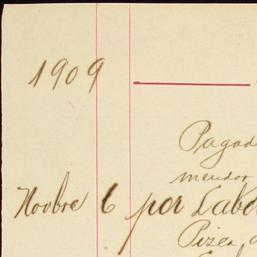 1909
Pagad
mendor
Novbre 6 por Labo
Pizca,